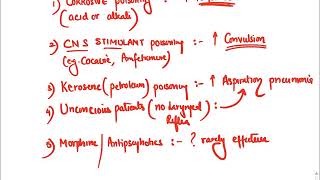 1) Corrosive poisoning
(acid or alkali)
2) CNS STIMULANT poisoning :- ↑ Convulsion
(eg. Cocaine, Amfetamene)
3) Kerosene (petroleum) poisoning :- ↑ Aspiration pneumonia
4) Unconcious patients (no laryngeal
Reflex)
5) Morphine / Antipsychotics :- ? rarely effective